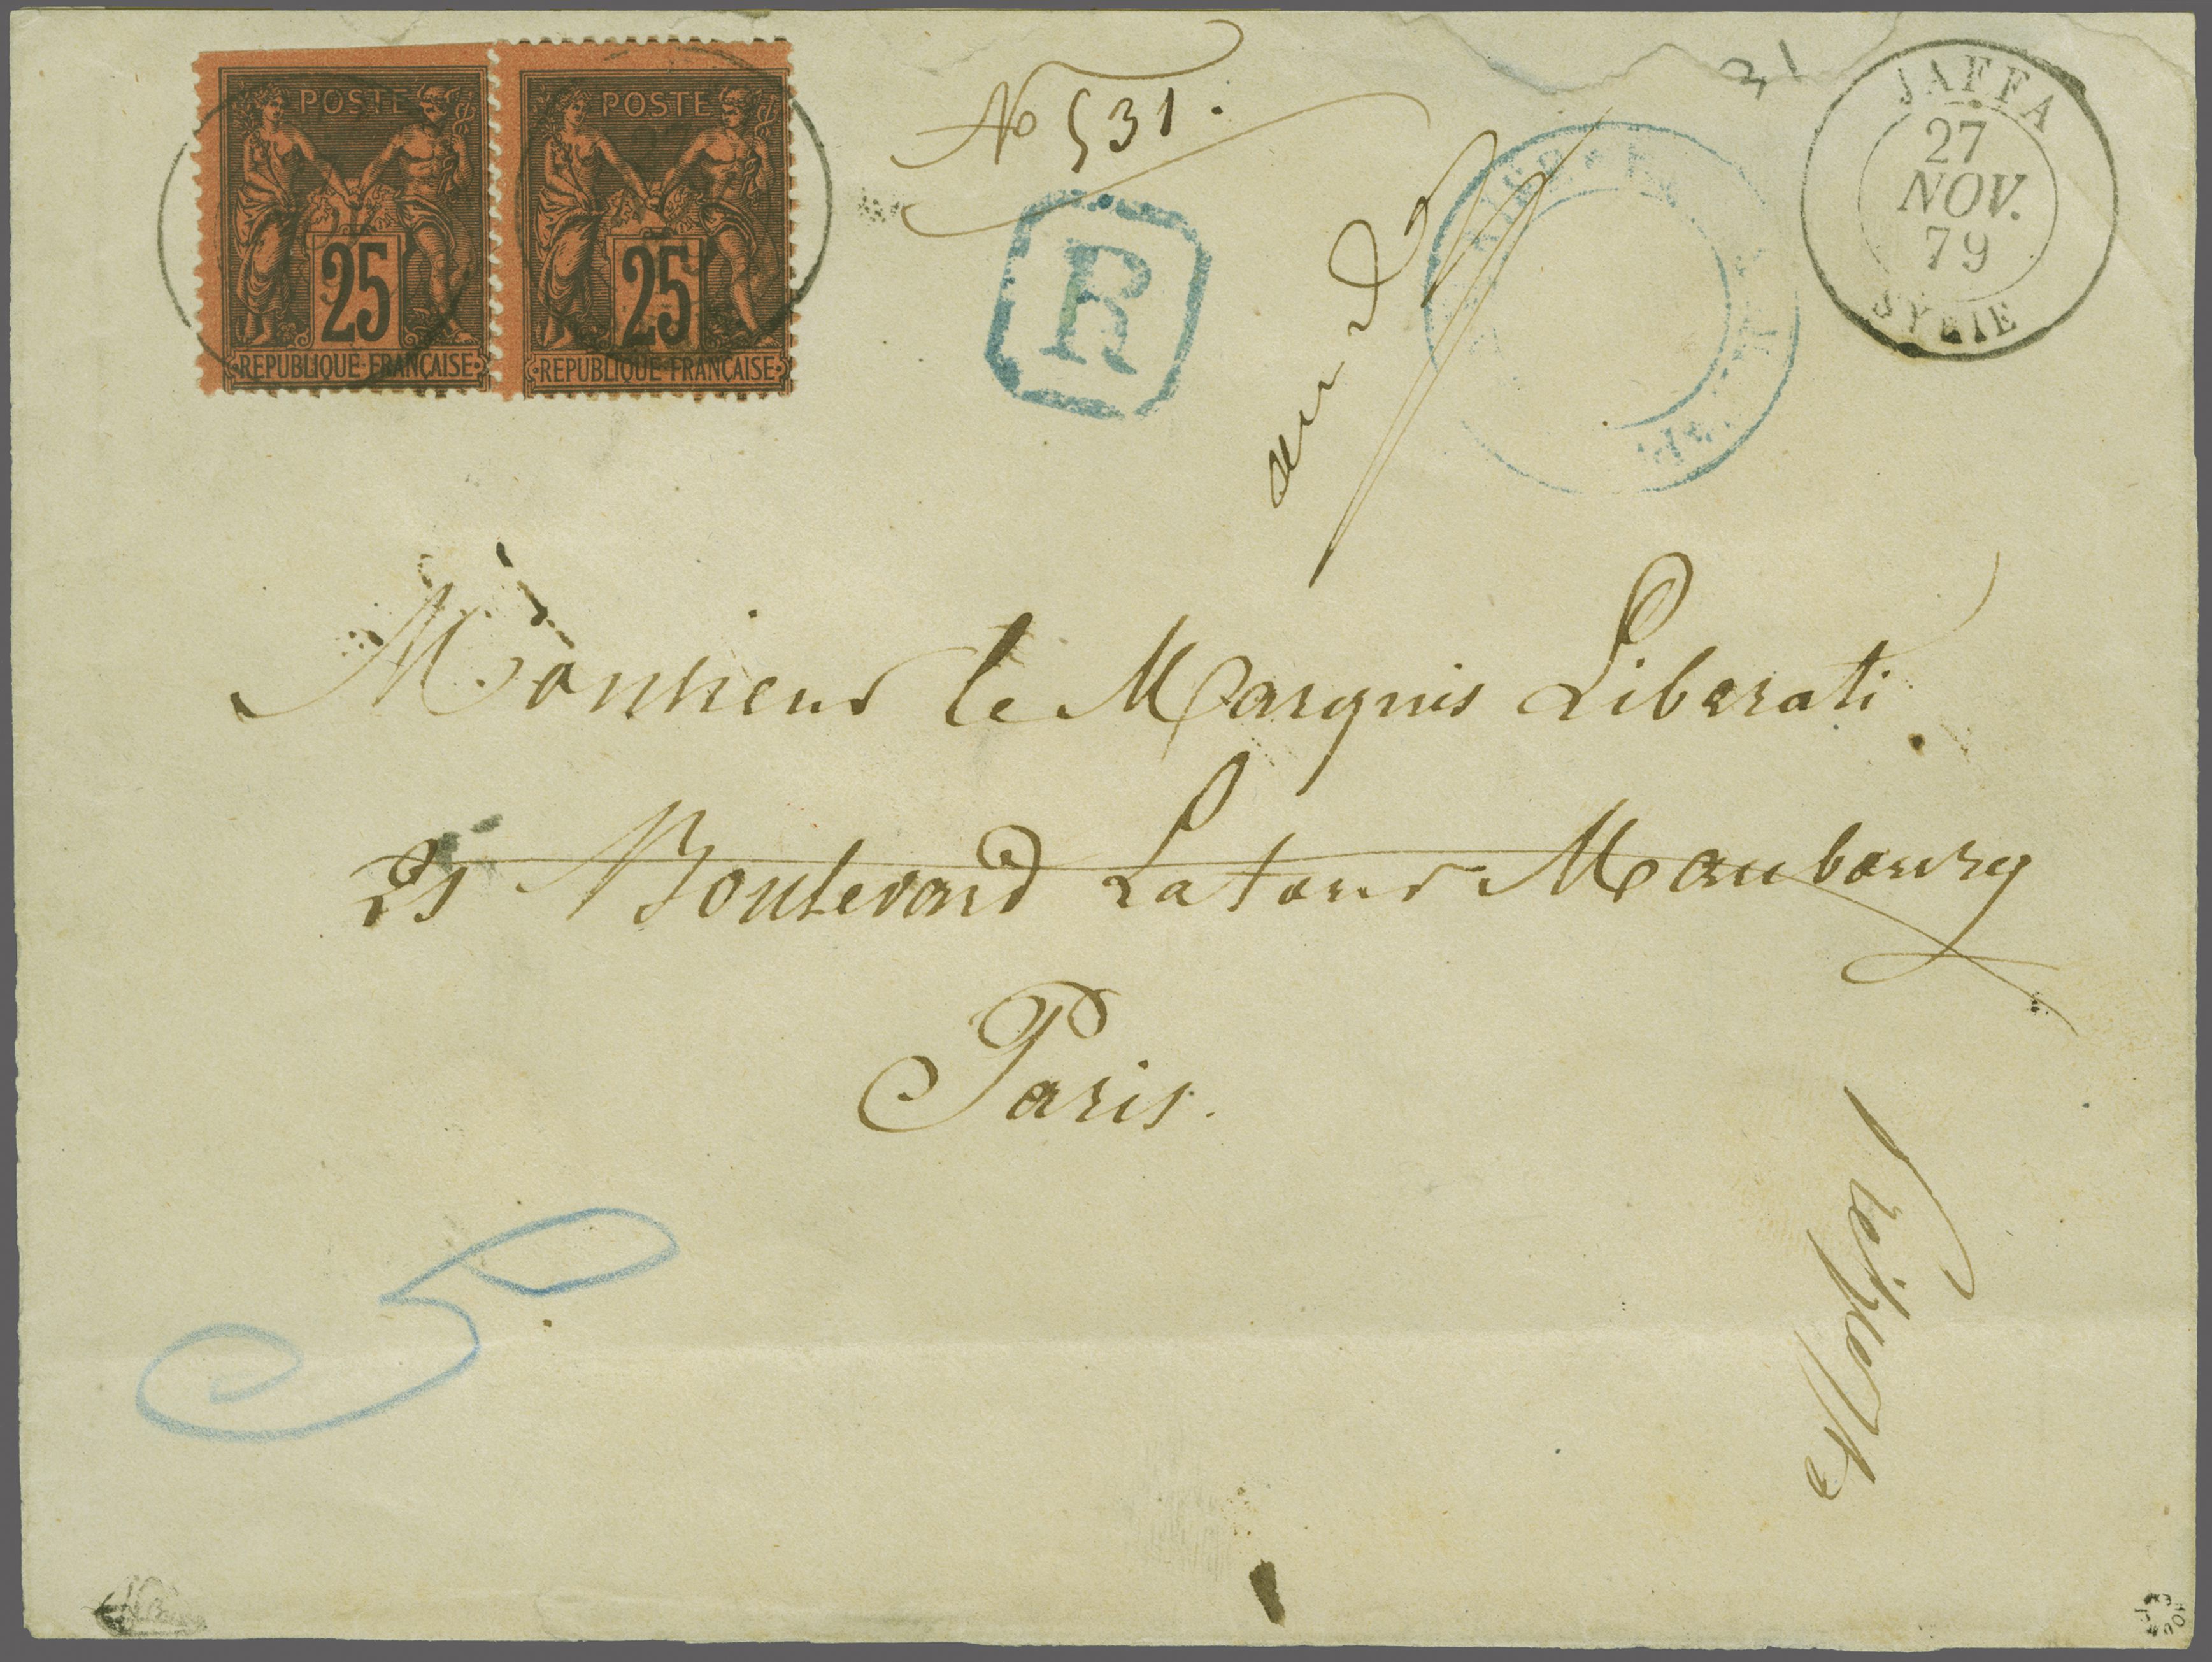 POSTE
25
REPUBLIQUE FRANÇAISE
POSTE
25
REPUBLIQUE FRANÇAISE
No 531.
R
31
JAFFA
27
NOV.
79
SYRIE
Monsieur le Marquis Liberati
21 Boulevard Latour Maubourg
Paris.
5